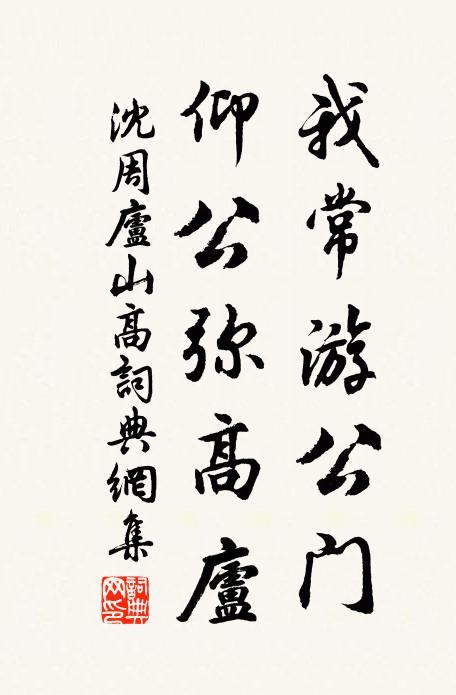 我常游公门
仰公弥高廬
沈周廬山高詞典網集
詞典
网印